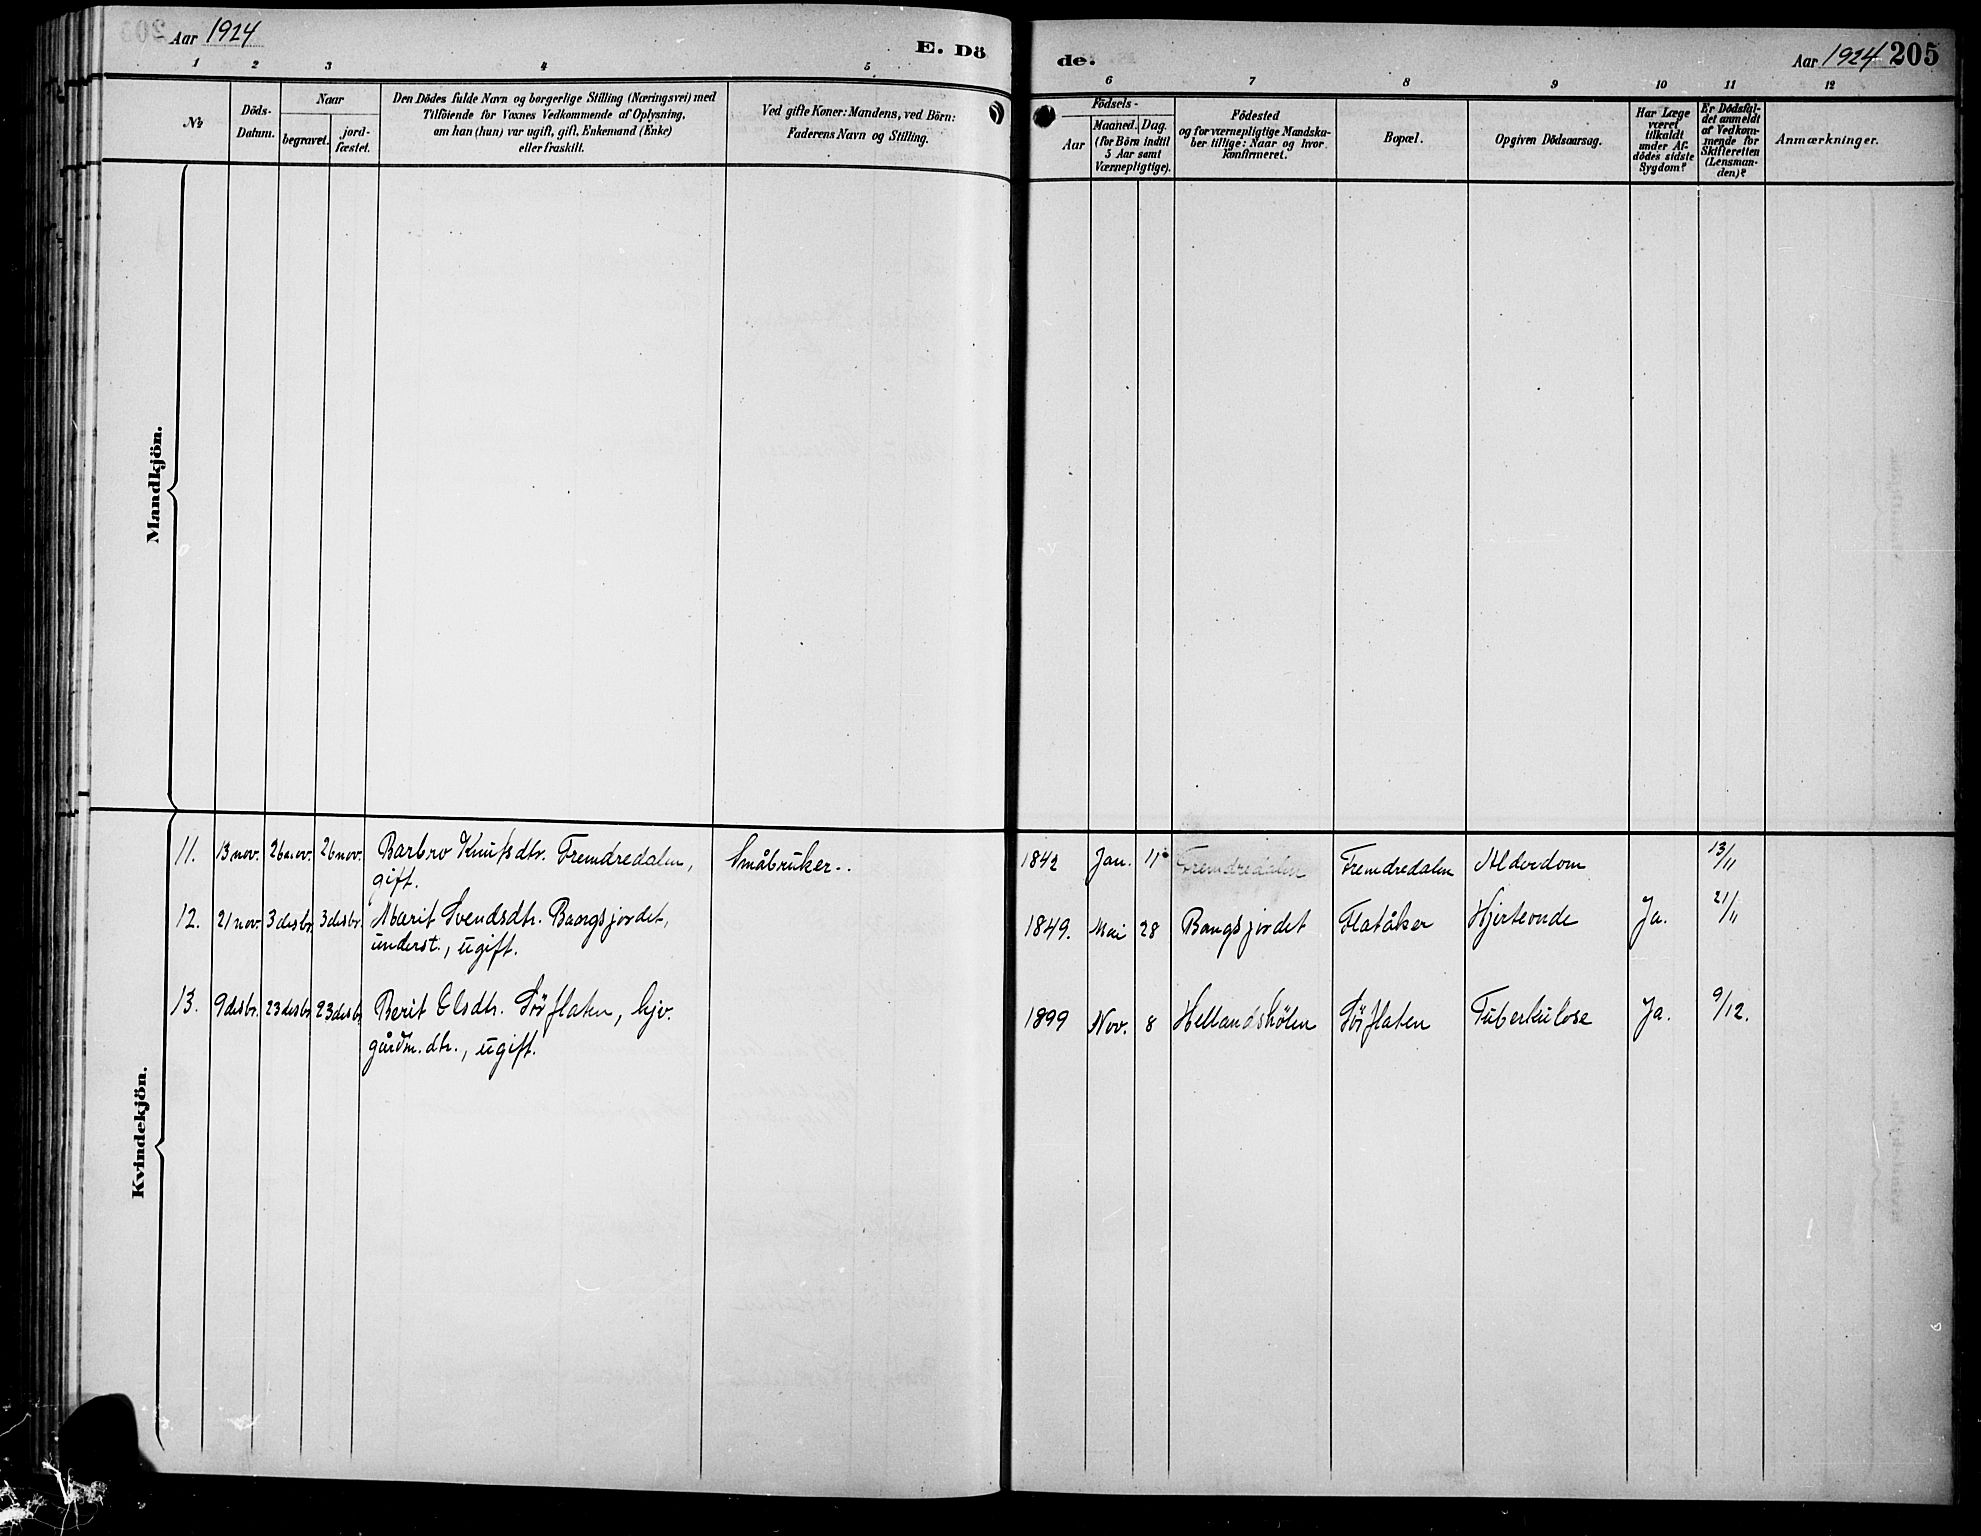 Aar 1924
E. Dö
de.
Aar 1924 205
1 2 3 4 5
6 7 8 9 10 11 12
No
Döds-
Datum.
Naar
begravet.
jord-
fæstet.
Den Dödes fulde Navn og borgerlige Stilling (Næringsvei) med
Tilföiende for Voxnes Vedkommende af Oplysning,
om han (hun) var ugift, gift, Enkemand (Enke)
eller fraskilt.
Ved gifte Koner: Mandens, ved Börn:
Faderens Navn og Stilling.
Födsels-
Aar
Maaned.
Dag.
(for Börn indtil
5 Aar samt
Værnepligtige).
Födested
og for værnepligtige Mandska-
ber tillige: Naar og hvor
konfirmeret.
Bopæl.
Opgiven Dödsaarsag.
Har Læge
været
tilkaldt
under Af-
dödes sidste
Sygdom?
Er Dödsfal-
det anmeldt
af Vedkom-
mende for
Skifteretten
(Lensman-
den)?
Anmærkninger.
Mandkjön.
Kvindekjön.
11. 13 nov. 26 nov. 26 nov. Barbro Knutsdtr. Fremdredalen, Småbruker.. 1842 Jan. 11 Fremdredalen Fremdredalen Alderdom 13/11
gift.
12. 21 nov. 3 desbr. 3 desbr. Marit Svendsdtr. Bangsjordet, 1849. Mai 28 Bangsjordet Flatåker Hjerteonde Ja. 21/11
underst., ugift.
13. 9 desbr. 23 desbr. 23 desbr. Berit Olsdtr. Sörflaten, hjv. 1899 Nov. 8 Hellandshölen Sörflaten Tuberkulose Ja. 9/12.
gårdm. dtr., ugift.